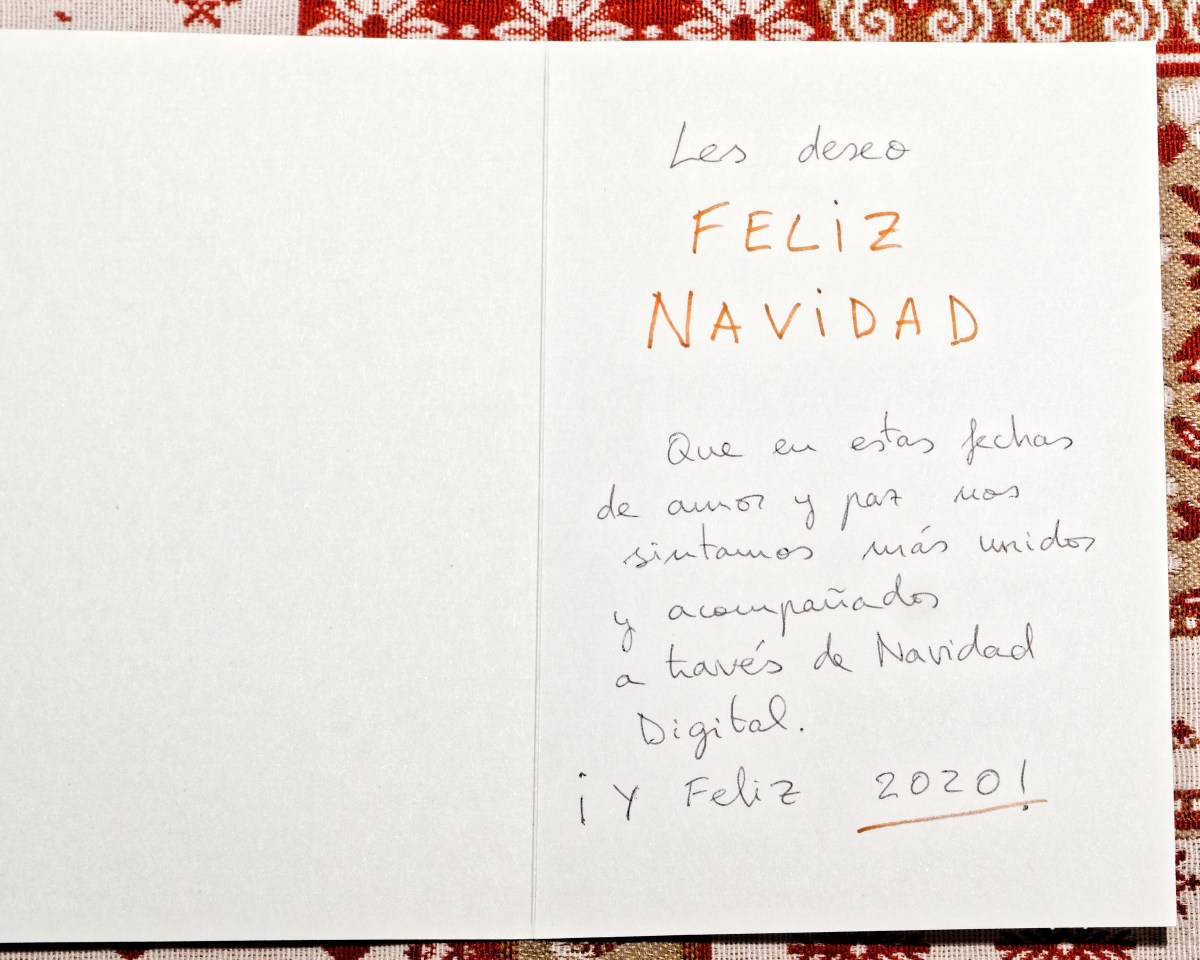 Les deseo
FELiZ
NAViDAD
Que en estas fechas
de amor y paz nos
sintamos más unidos
y acompañados
a través de Navidad
Digital.
¡Y Feliz 2020!